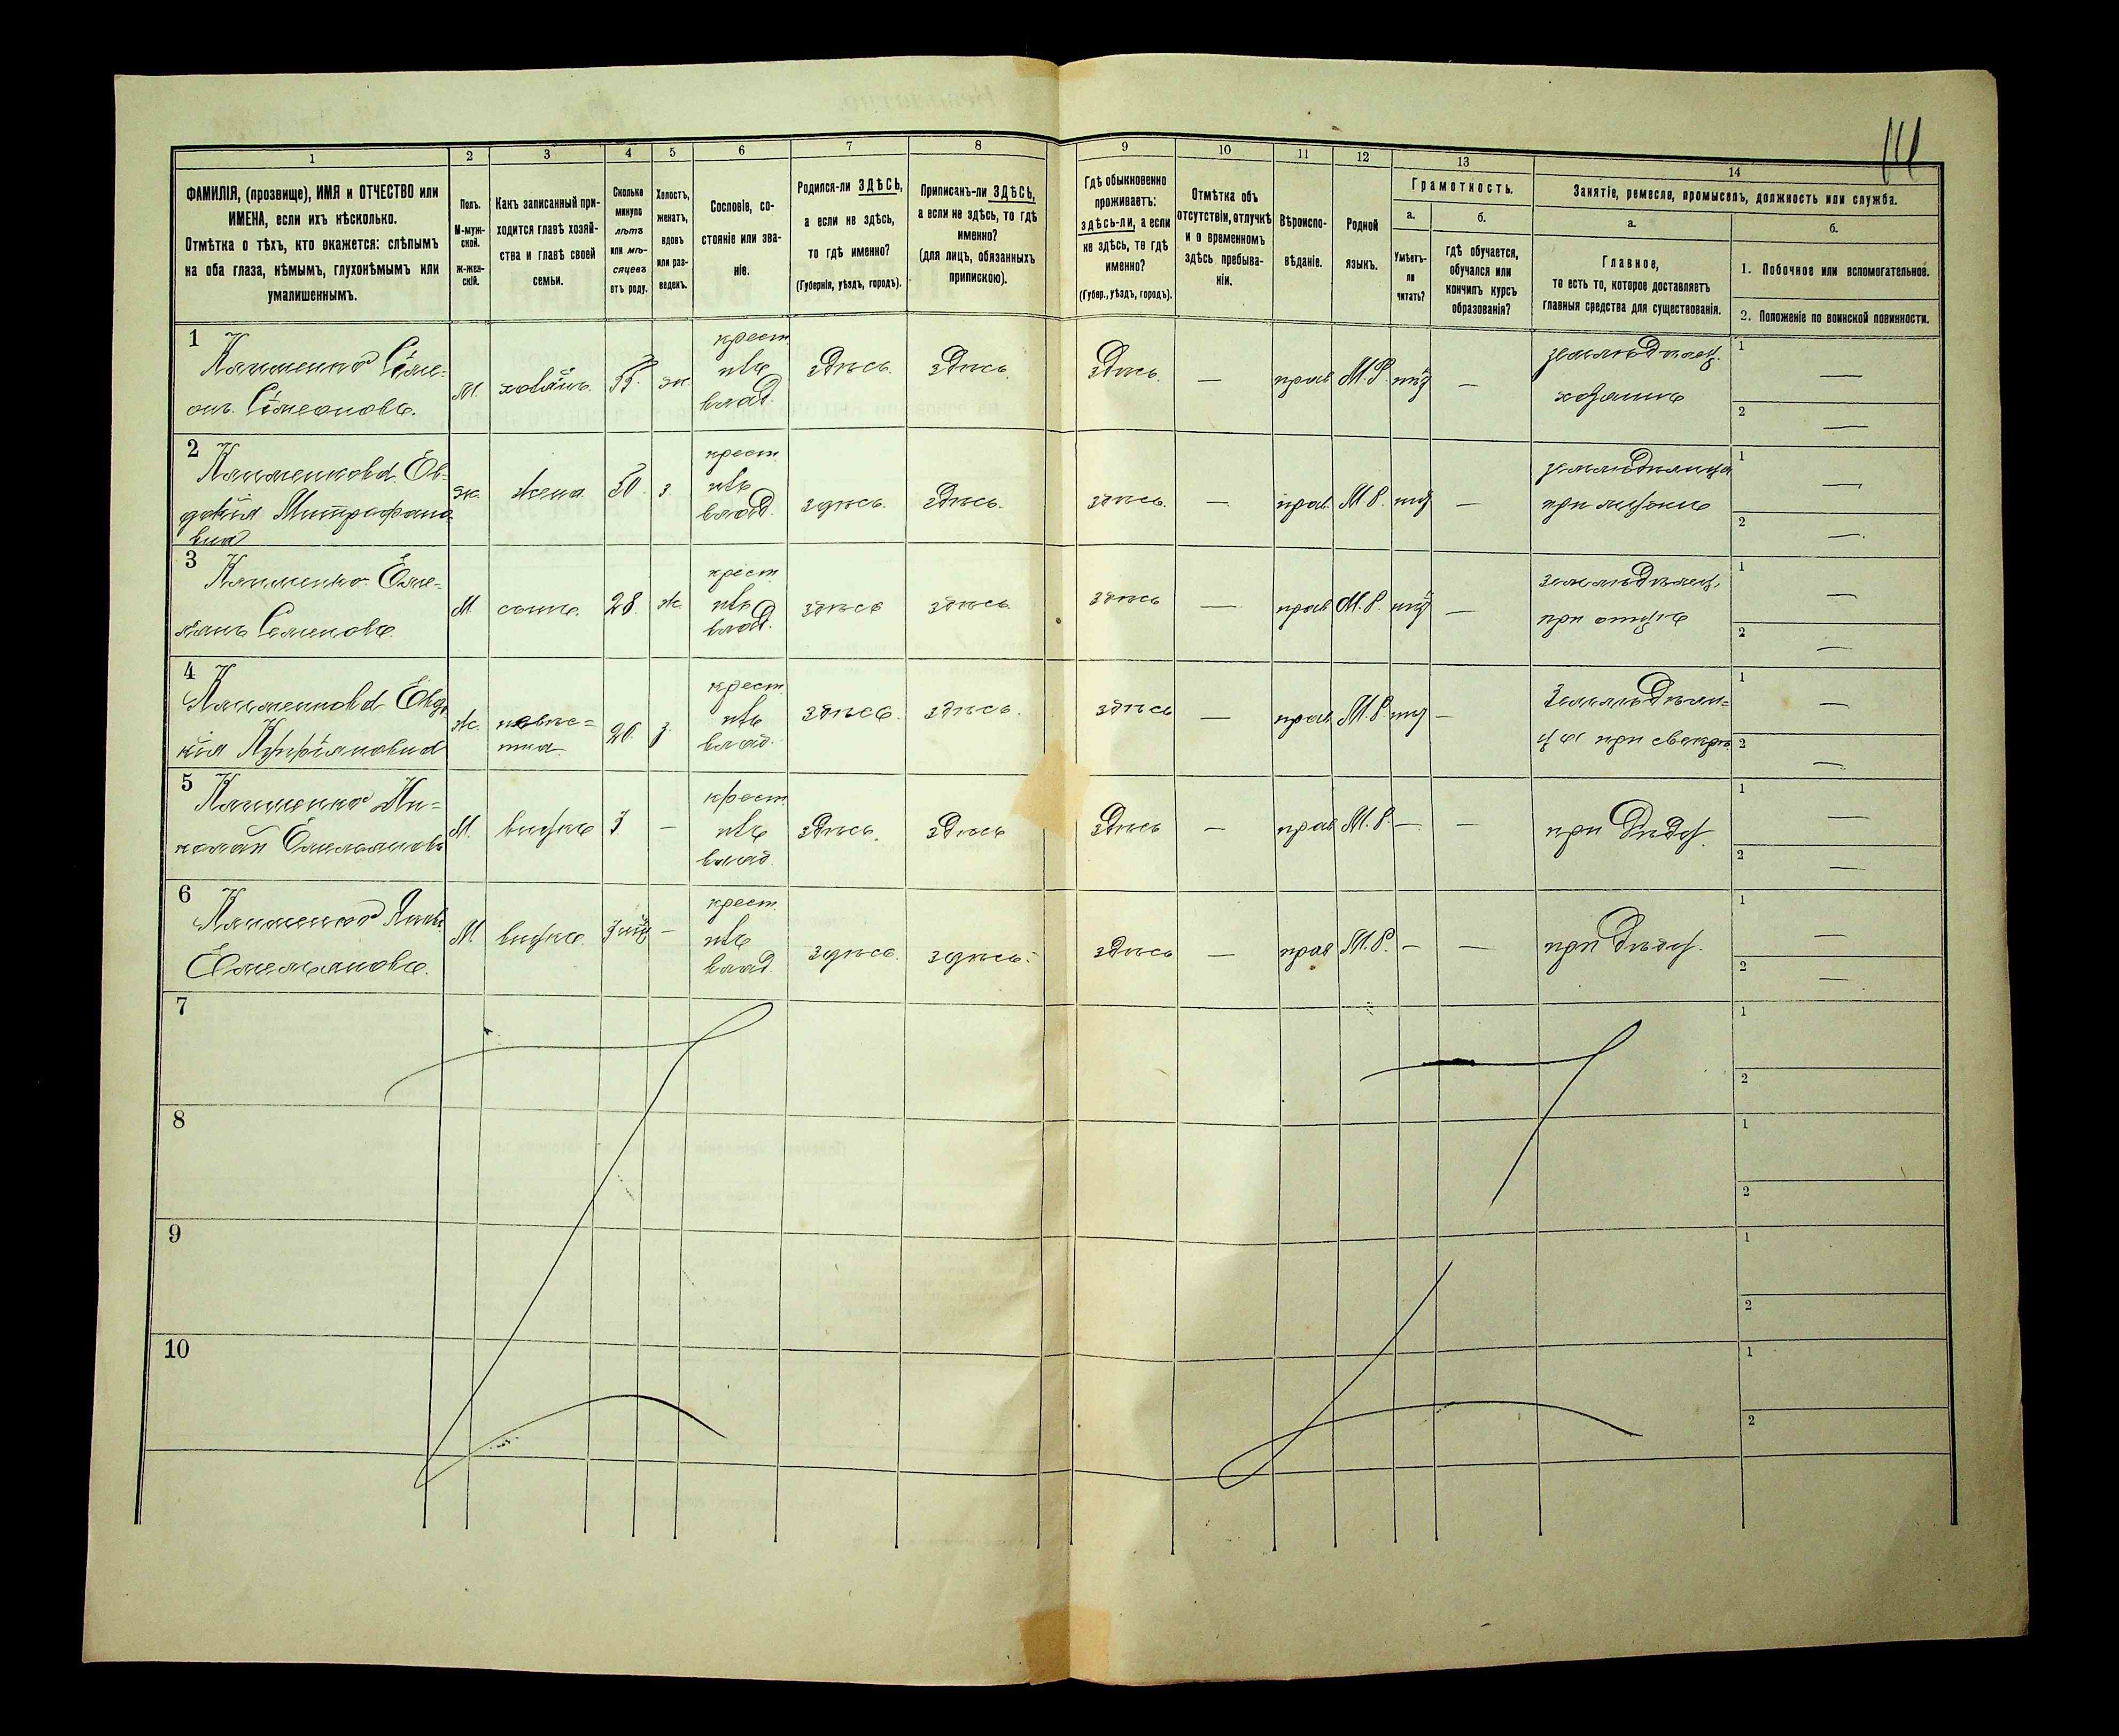 1 2 3 4 5 6 7 8 9 10 11 12 13 14
ФАМИЛІЯ, (прозвище), ИМЯ и ОТЧЕСТВО или
ИМЕНА, если ихъ нѣсколько.
Отмѣтка о тѣхъ, кто окажется: слѣпымъ
на оба глаза, нѣмымъ, глухонѣмымъ или
умалишеннымъ.
Полъ.
М-муж-
ской.
ж-жен-
скій.
Какъ записанный при-
ходится главѣ хозяй-
ства и главѣ своей
семьи.
Сколько
минуло
лѣтъ
или мѣ-
сяцевъ
отъ роду.
Холостъ,
женатъ,
вдовъ
или раз-
веденъ.
Сословіе, со-
стояніе или зва-
ніе.
Родился-ли ЗДѢСЬ,
а если не здѣсь,
то гдѣ именно?
(Губернія, уѣздъ, городъ).
Приписанъ-ли ЗДѢСЬ,
а если не здѣсь, то гдѣ
именно?
(для лицъ, обязанныхъ
припискою).
Гдѣ обыкновенно
проживаетъ:
здѣсь-ли, а если
не здѣсь, то гдѣ
именно?
(Губер., уѣздъ, городъ).
Отмѣтка объ
отсутствіи, отлучкѣ
и о временномъ
здѣсь пребыва-
ніи.
Вѣроиспо-
вѣданіе.
Родной
языкъ.
Грамотность.
а.
Умѣетъ-
ли
читать?
б.
гдѣ обучается,
обучался или
кончилъ курсъ
образованія?
Занятіе, ремесло, промыселъ, должность или служба.
а.
Главное,
то есть то, которое доставляетъ
главныя средства для существованія.
б.
1. Побочное или вспомогательное.
2. Положеніе по воинской повинности.
1
Клименко Сіме-
онъ Сімеоновъ.
М. 55. ж.
крест.
влад.
здѣсь. здѣсь. здѣсь. — прав М.Р. —
земледѣлец.
хозяинъ
1 —
2 —
2
Клименкова Ев-
докія Митрофано-
вна
ж. жена 50. з
крест
влад.
здѣсь. здѣсь. здѣсь. — прав. М.Р. —
земледѣлица
1 —
2 —
3
Клименко Еме-
лянъ Семеновъ
М сынъ. 28. ж.
крест
влад.
здѣсь здѣсь. здѣсь — прав М.Р. —
земледѣлец.
при отцѣ
1 —
2 —
4
Клименкова Евдо
кія
ж. невѣс-
тка 26. з.
крест.
влад.
здѣсь. здѣсь. здѣсь — прав М.Р. —
Земледѣли-
ца при свекрѣ
1 —
2 —
5
Клименко Ни-
колай Емельяновъ
М. внукъ 3. —
крест.
влад.
здѣсь здѣсь здѣсь — прав М.Р. — —
при дѣду.
1 —
2 —
6
Клименко Яковъ
Емельяновъ.
М. внукъ —
крест.
влад.
здѣсь. здѣсь. здѣсь — прав М.Р. — —
при дѣду.
1 —
2 —
7 1
2
8 1
2
9 1
2
10 1
2